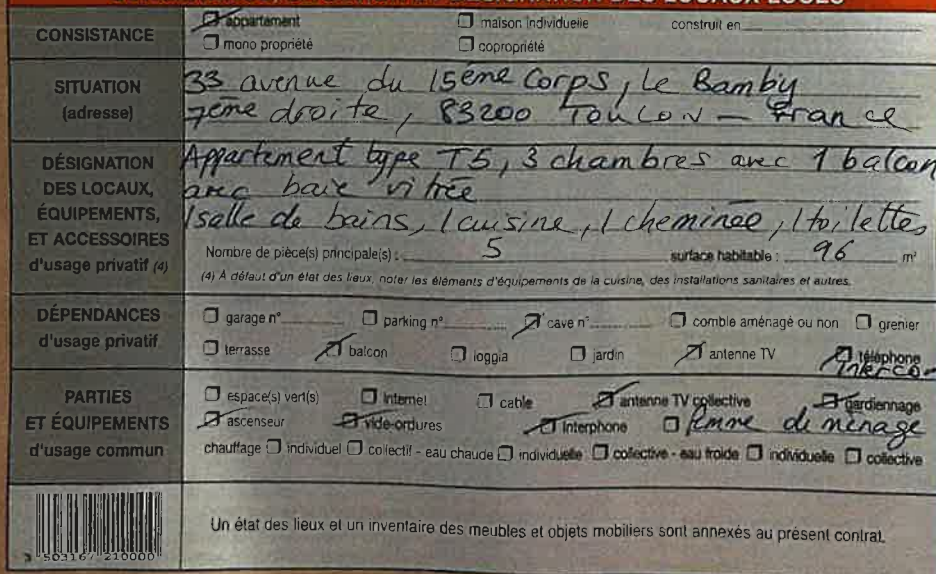 DÉSIGNATION DES LOCAUX LOUÉS
CONSISTANCE
appartement maison individuelle construit en
mono propriété copropriété
SITUATION
(adresse)
33 avenue du 15ème Corps, Le Bamby
7ème droite, 83200 TOULON - France
DÉSIGNATION
DES LOCAUX,
ÉQUIPEMENTS,
ET ACCESSOIRES
d'usage privatif (4)
Appartement type T5, 3 chambres avec 1 balcon
avec baie vitrée
1 salle de bains, 1 cuisine, 1 cheminée, 1 toilettes
Nombre de pièce(s) principale(s) : 5 surface habitable : 96 m²
(4) À défaut d'un état des lieux, noter les éléments d'équipements de la cuisine, des installations sanitaires et autres.
DÉPENDANCES
d'usage privatif
garage n° parking n° cave n° comble aménagé ou non grenier
terrasse balcon loggia jardin antenne TV téléphone
interco
PARTIES
ET ÉQUIPEMENTS
d'usage commun
espace(s) vert(s) Internet cable antenne TV collective gardiennage
ascenseur vide-ordures Interphone femme de ménage
chauffage individuel collectif - eau chaude individuelle collective - eau froide individuelle collective
3 503167 210000
Un état des lieux et un inventaire des meubles et objets mobiliers sont annexés au présent contrat.